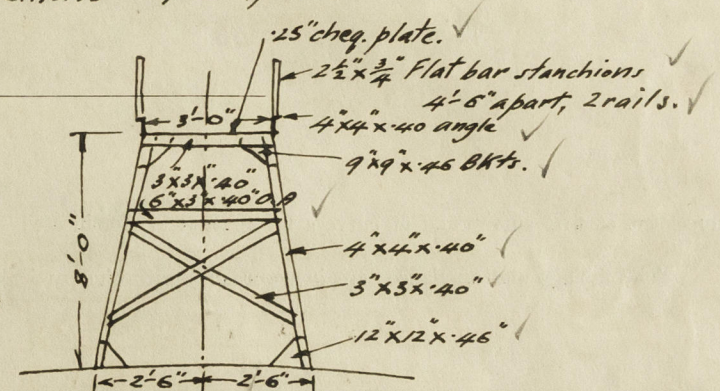 .25" cheq. plate.
2½" x ¾" Flat bar stanchions
4'-6" apart, 2 rails.
3'-0"
4"x4"x.40 angle
9"x9"x.46 Bkts.
3"x3"x.40"
6"x3"x.40" O.A
8'-0"
4"x4"x.40"
3"x3"x.40"
12"x12"x.46"
2'-6" 2'-6"